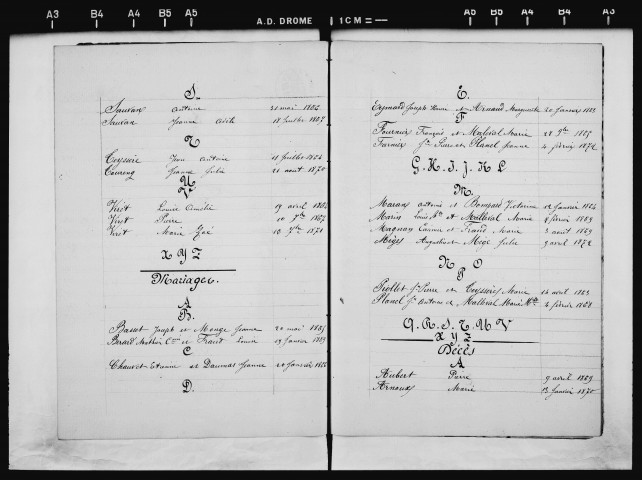 A3 B4 A4 B5 A5 A.D. DROME 1 CM = A5 B5 A4 B4 A3
S.
Sauvan Antoine 31 mai 1864
Sauvan Jeanne Adèle 18 juillet 1867
T
Teyssier Jean Antoine 11 juillet 1864
Jeanne Julie 21 aout 1870
U
V
Viret Louise Amélie 19 avril 1864
Viret Pierre 10 7bre 1867
Viret Marie Zoé 10 7bre 1871
X Y Z
Mariages.
A
B.
Basset Joseph et Monge Jeanne 20 mai 1865
Berard et Traud 19 février 1869
C
Chauvet Etienne et Daumas Jeanne 20 janvier 1866
D.
E.
Eymard Joseph et Arnaud Marguerite 20 janvier 1863
F
Fournier François et Malleval Marie 28 9bre 1865
Jn Pierre et Planel Jeanne 4 février 1872
G. H. I. J. K L
M.
Antoine et Victorine 12 janvier 1864
Marin Louis et Malleval Marie février 1869
Magnan et Traud Marie 3 aout 1869
Mège Augustin et Mège Julie 9 avril 1872
N O
P
Piollet Jn Pierre et Teyssier Marie 14 avril 1863
Planel Jn Antoine et Malleval Marie 4 février 1868
Q. R. S. T. U V
X Y Z
Décès
A
Aubert Pierre 9 avril 1869
Arnoux Marie 13 janvier 1870